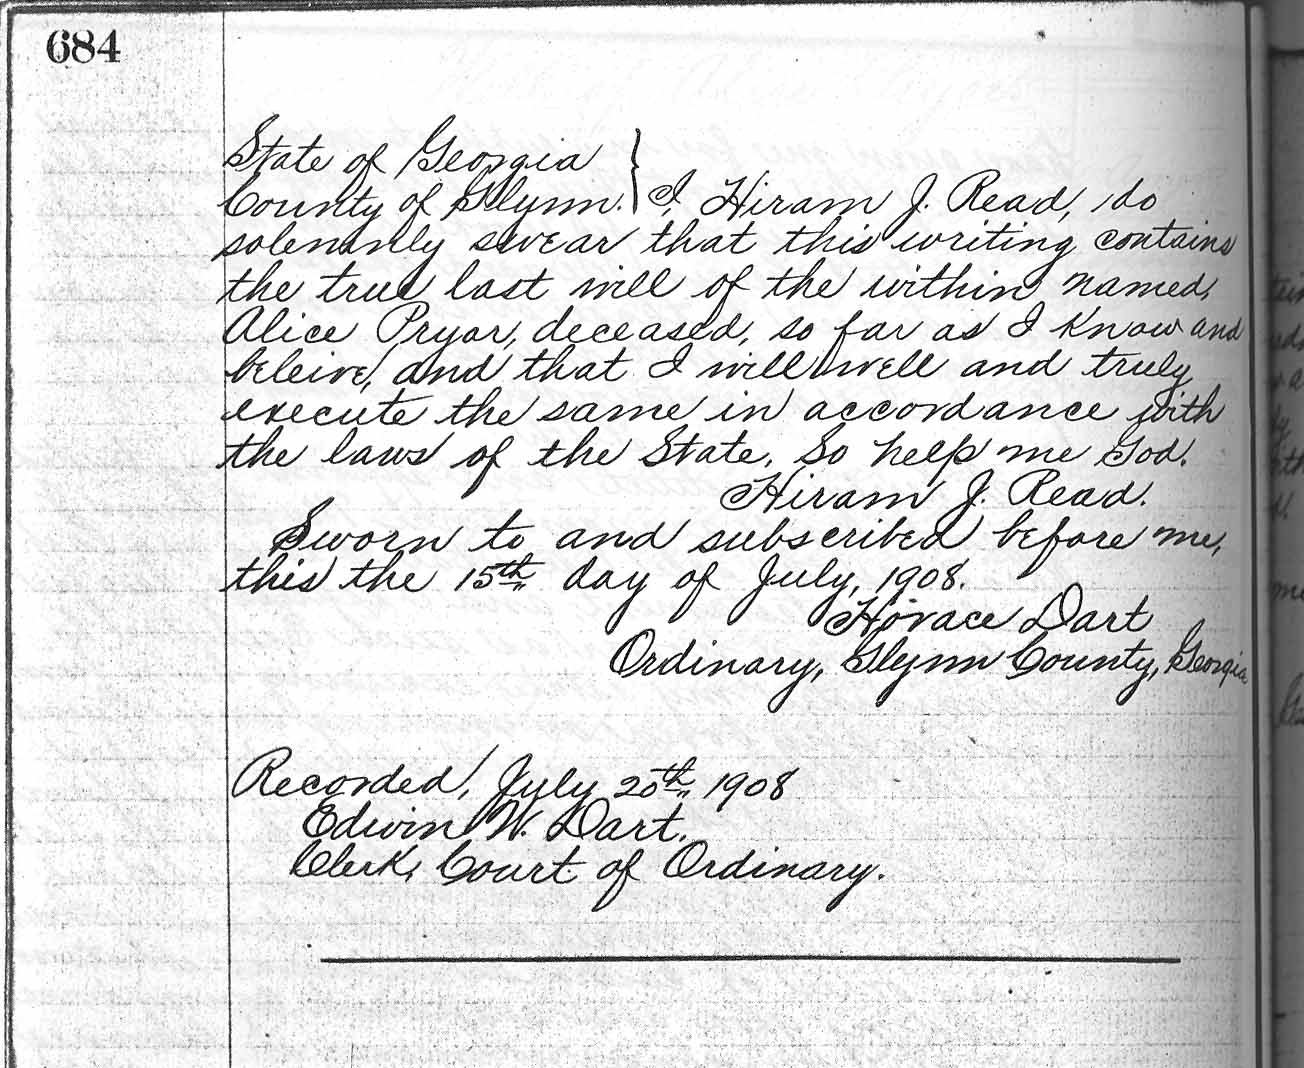 684
State of Georgia
County of Glynn. } I, Hiram J. Read, do
solemnly swear that this writing contains
the true last will of the within named,
Alice Pryor, deceased, so far as I know and
beleive, and that I will well and truly
execute the same in accordance with
the laws of the State. So help me God.
Hiram J. Read.
Sworn to and subscribed before me,
this the 15th day of July, 1908.
Horace Dart
Ordinary, Glynn County, Georgia
Recorded, July 20th 1908
Edwin W. Dart.
Clerk, Court of Ordinary.